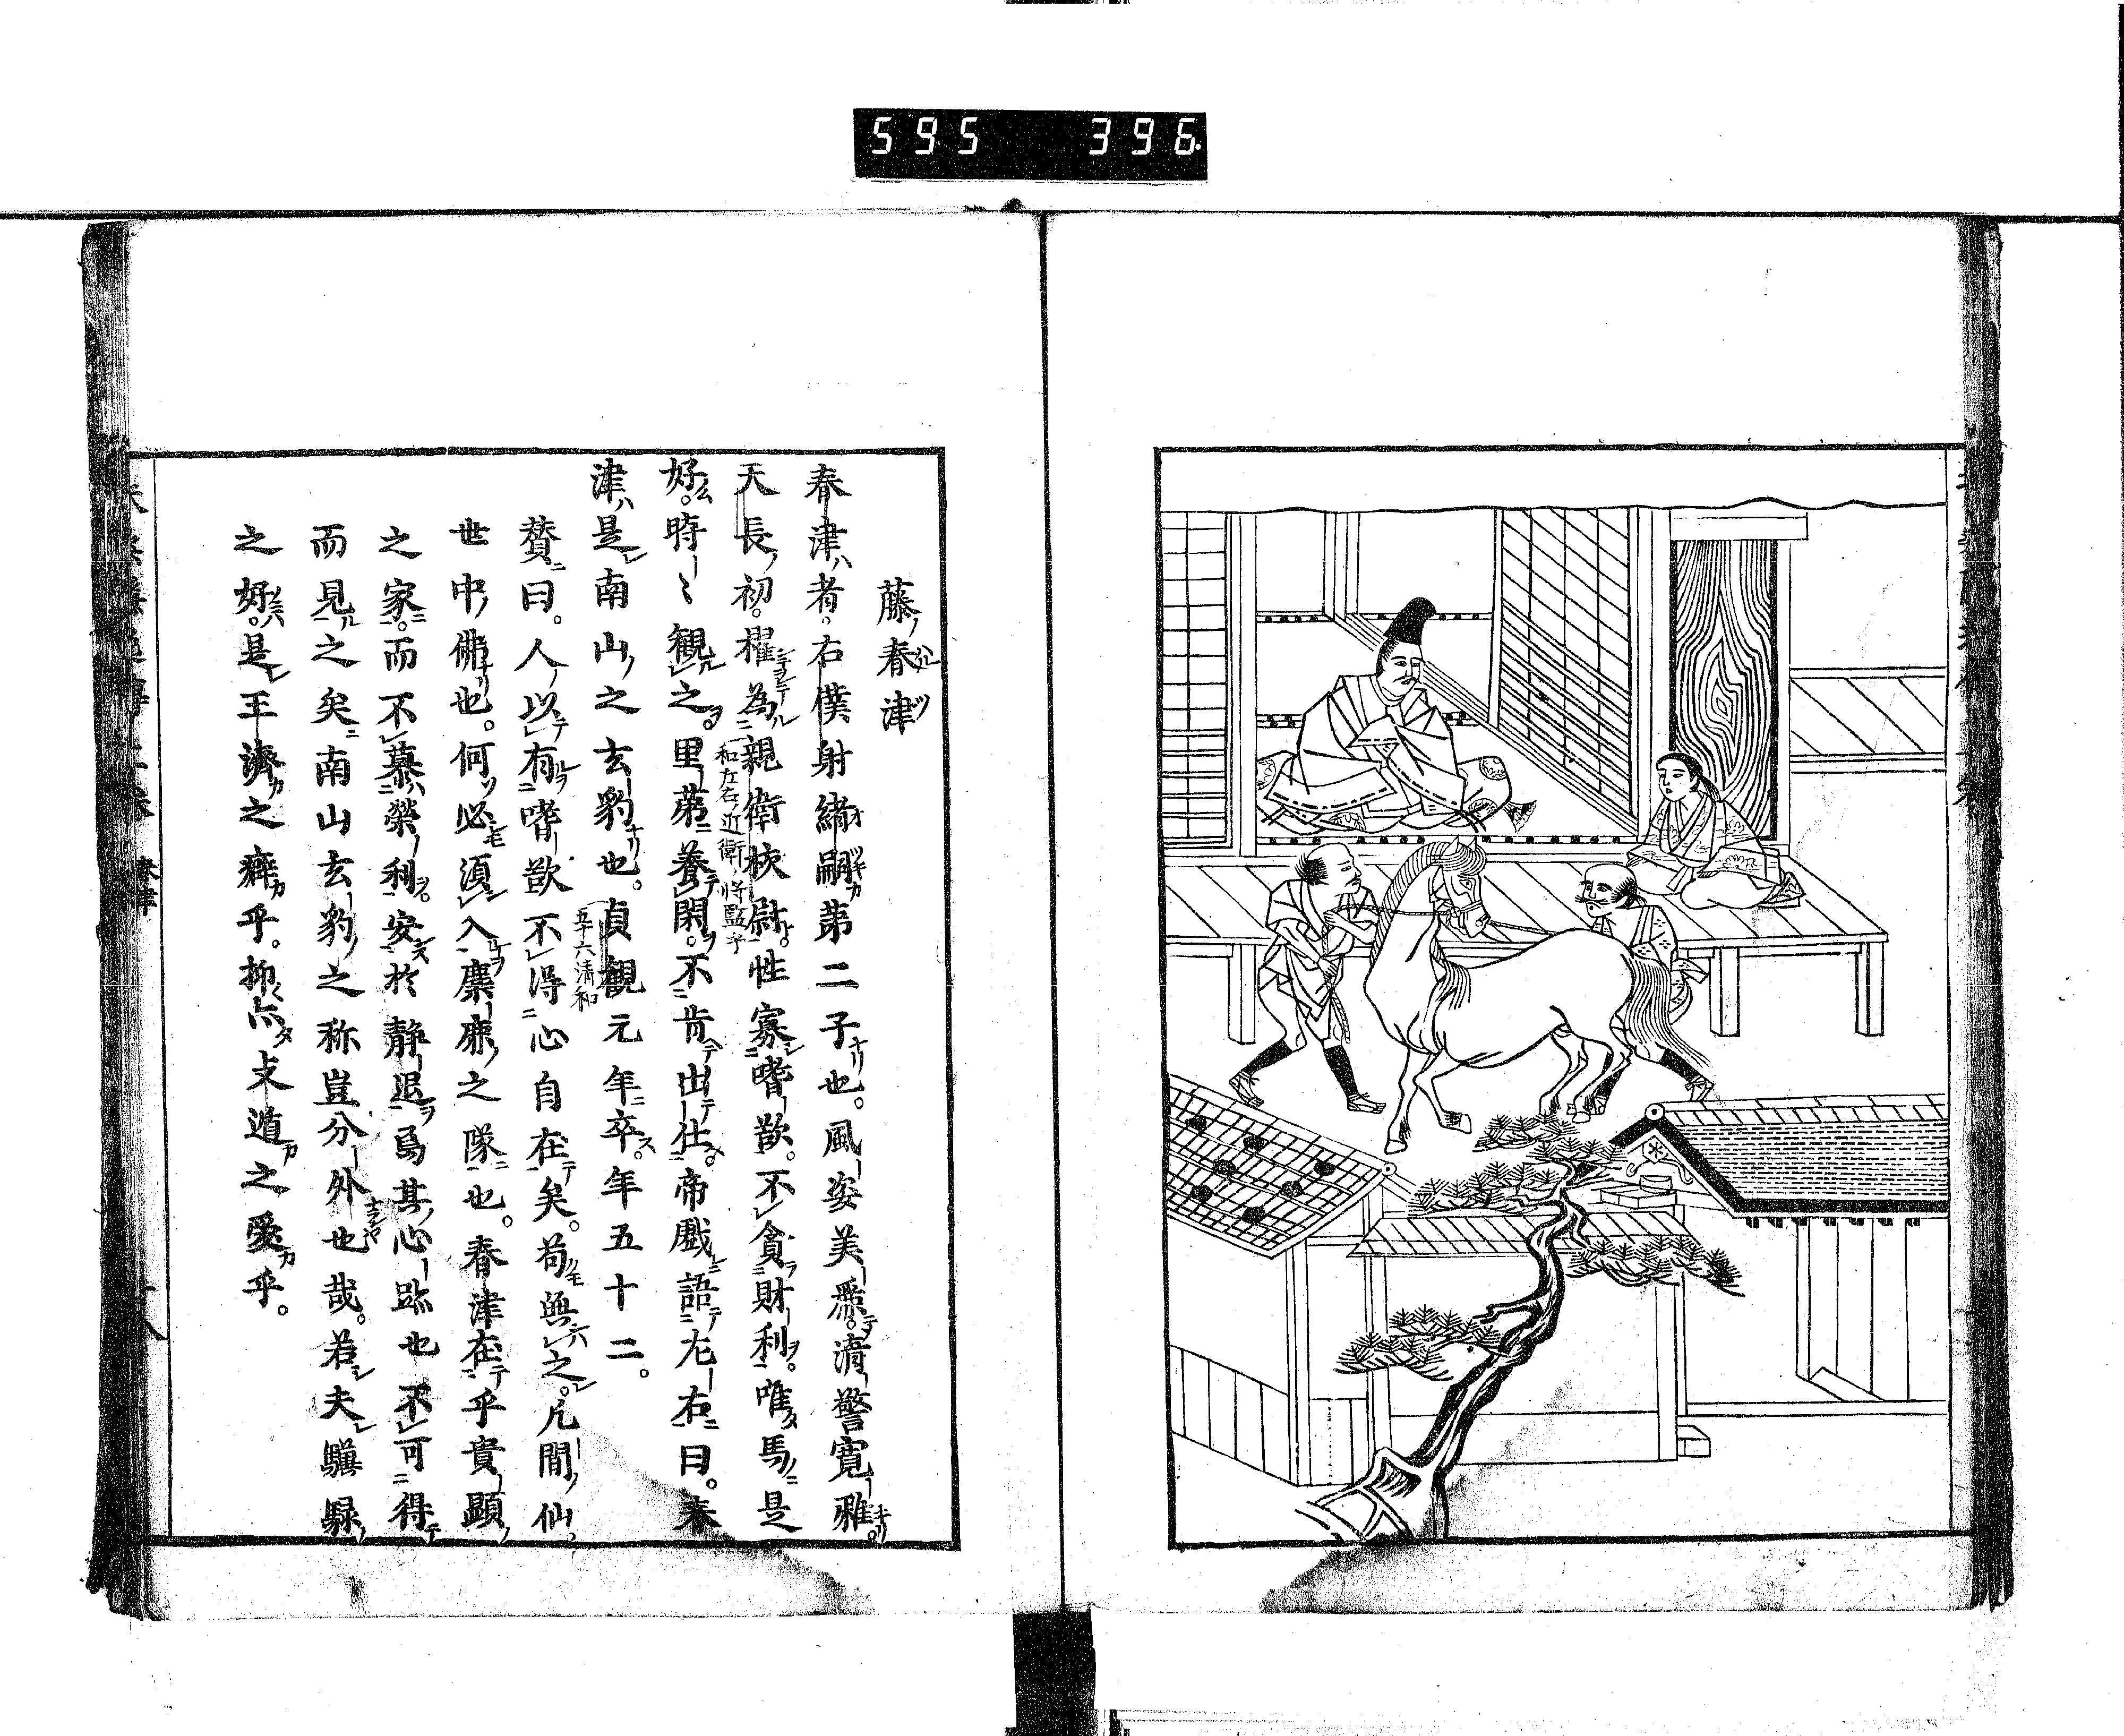 595 396
藤春津
春津者。右僕射緒嗣第二子也。風姿美麗。清警寛雅。
天長初。擢為親衛校尉。性寡嗜欲。不貪財利。唯馬是
好。時〻観之。里第養閑。不肯出仕。帝戲語左右曰。春
津是南山之玄豹也。貞観元年卒。年五十二。
賛曰。人以有嗜欲不得心自在矣。苟無之。凡間仙。
世中佛也。何必須入麋鹿之隊也。春津在乎貴顕
之家。而不慕榮利。安於静退。為其心跡也不可得
而見之矣。南山玄豹之称豈分外也哉。若夫驥騄
之好。是王濟之癖乎。抑亦支遁之愛乎。
和左右近衛将監乎
五十六清和
春津